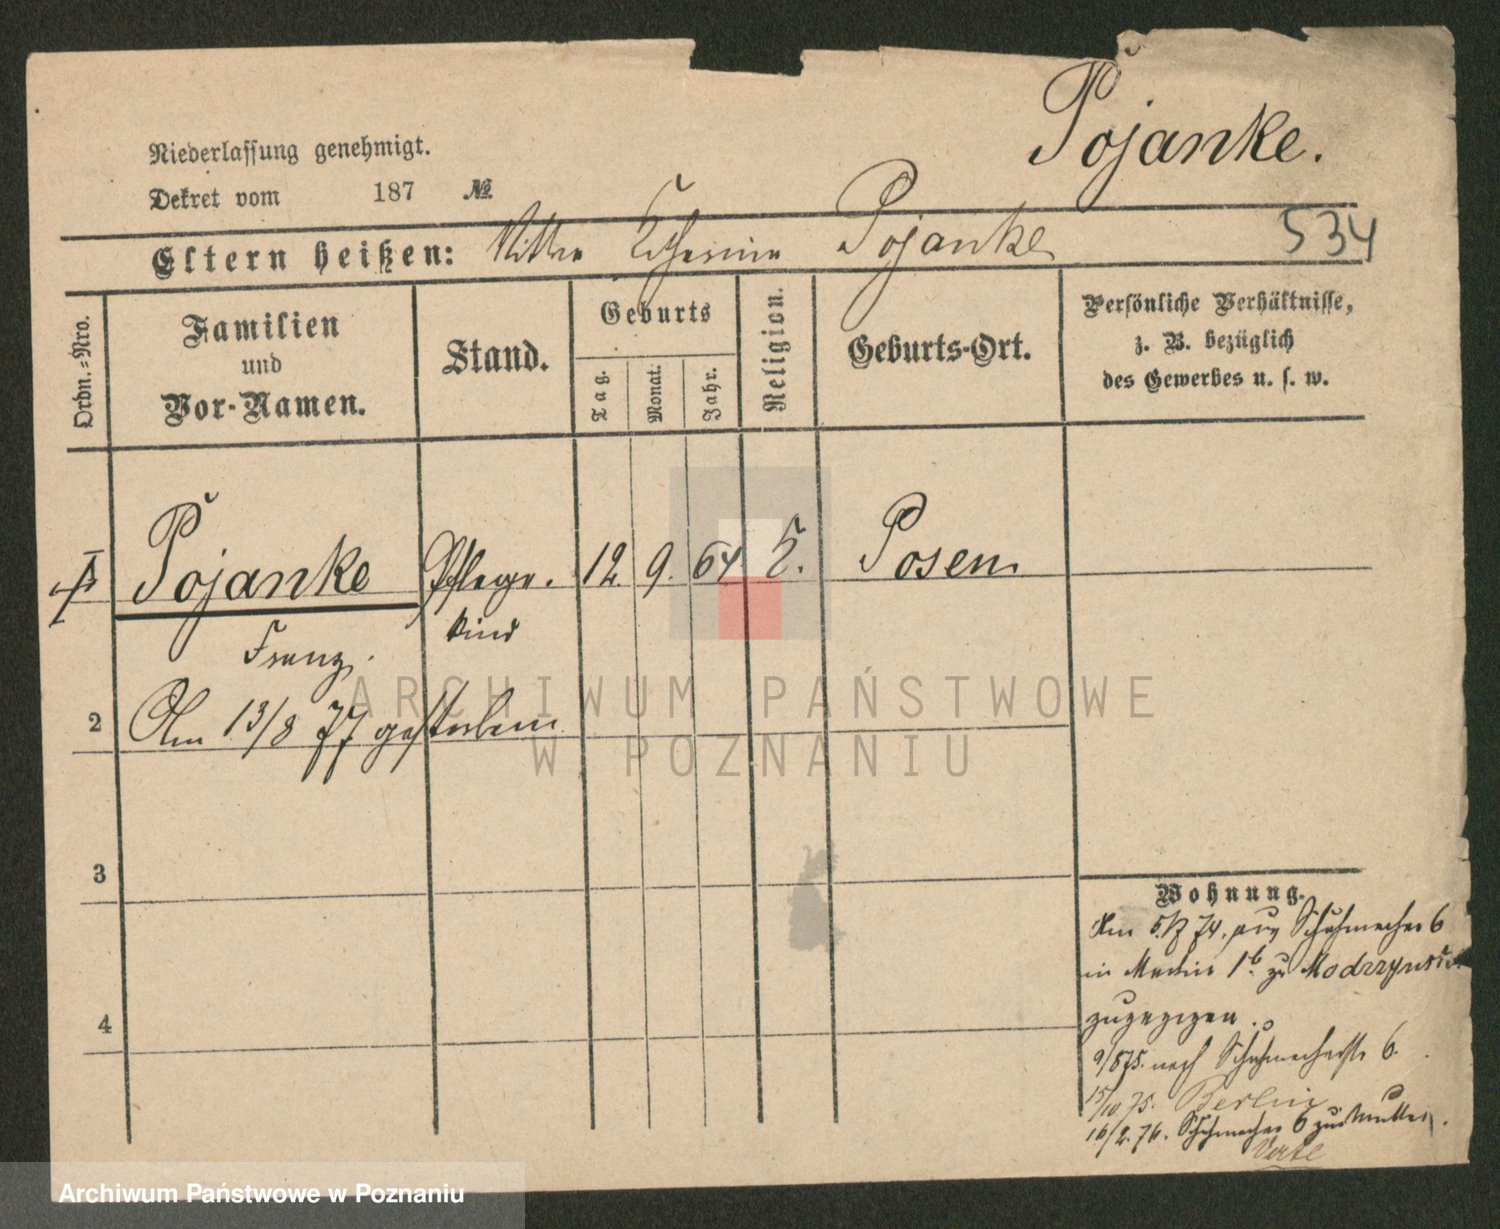 Pojanke.
Niederlassung genehmigt.
Dekret vom 187 №
Eltern heißen: Mutter Catharina Pojanke
534
Ordn.-Nro.
Familien
und
Vor-Namen.
Stand.
Geburts
Tag.
Monat.
Jahr.
Religion.
Geburts-Ort.
Persönliche Verhältnisse,
z. B. bezüglich
des Gewerbes u. s. w.
1 Pojanke Pflege- 12. 9. 64 Posen
kind
Franz
2 Am 13/8 77 gestorben
3
4
Wohnung.
74. aus Schuhmacher 6
in 1b zu Modrzynski
zugezogen.
9/8 75. nach Schuhmacherstr 6.
15/10 75. Berlin
16/2. 76. Schuhmacher 6 zur Mutter.
Verte
ARCHIWUM PAŃSTWOWE
W POZNANIU
Archiwum Państwowe w Poznaniu